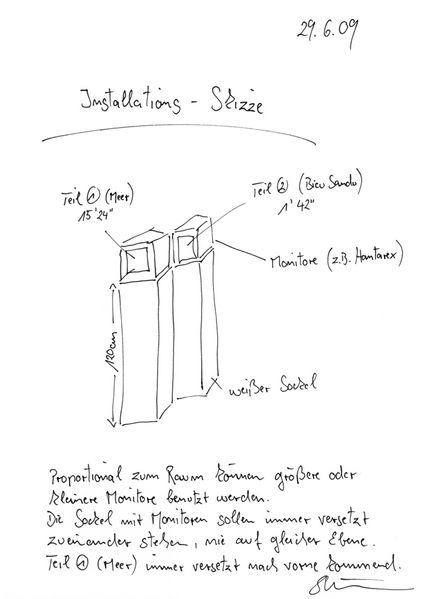 29.6.09
Installations - Skizze
Teil ① (Meer)
15'24"
Teil ② (Bicu Sando)
1'42"
Monitore (z.B. Hantarex)
120cm
weißer Sockel
Proportional zum Raum können größere oder
kleinere Monitore benutzt werden.
Die Sockel mit Monitoren sollen immer versetzt
zueinander stehen, nie auf gleicher Ebene.
Teil ① (Meer) immer versetzt nach vorne kommend.